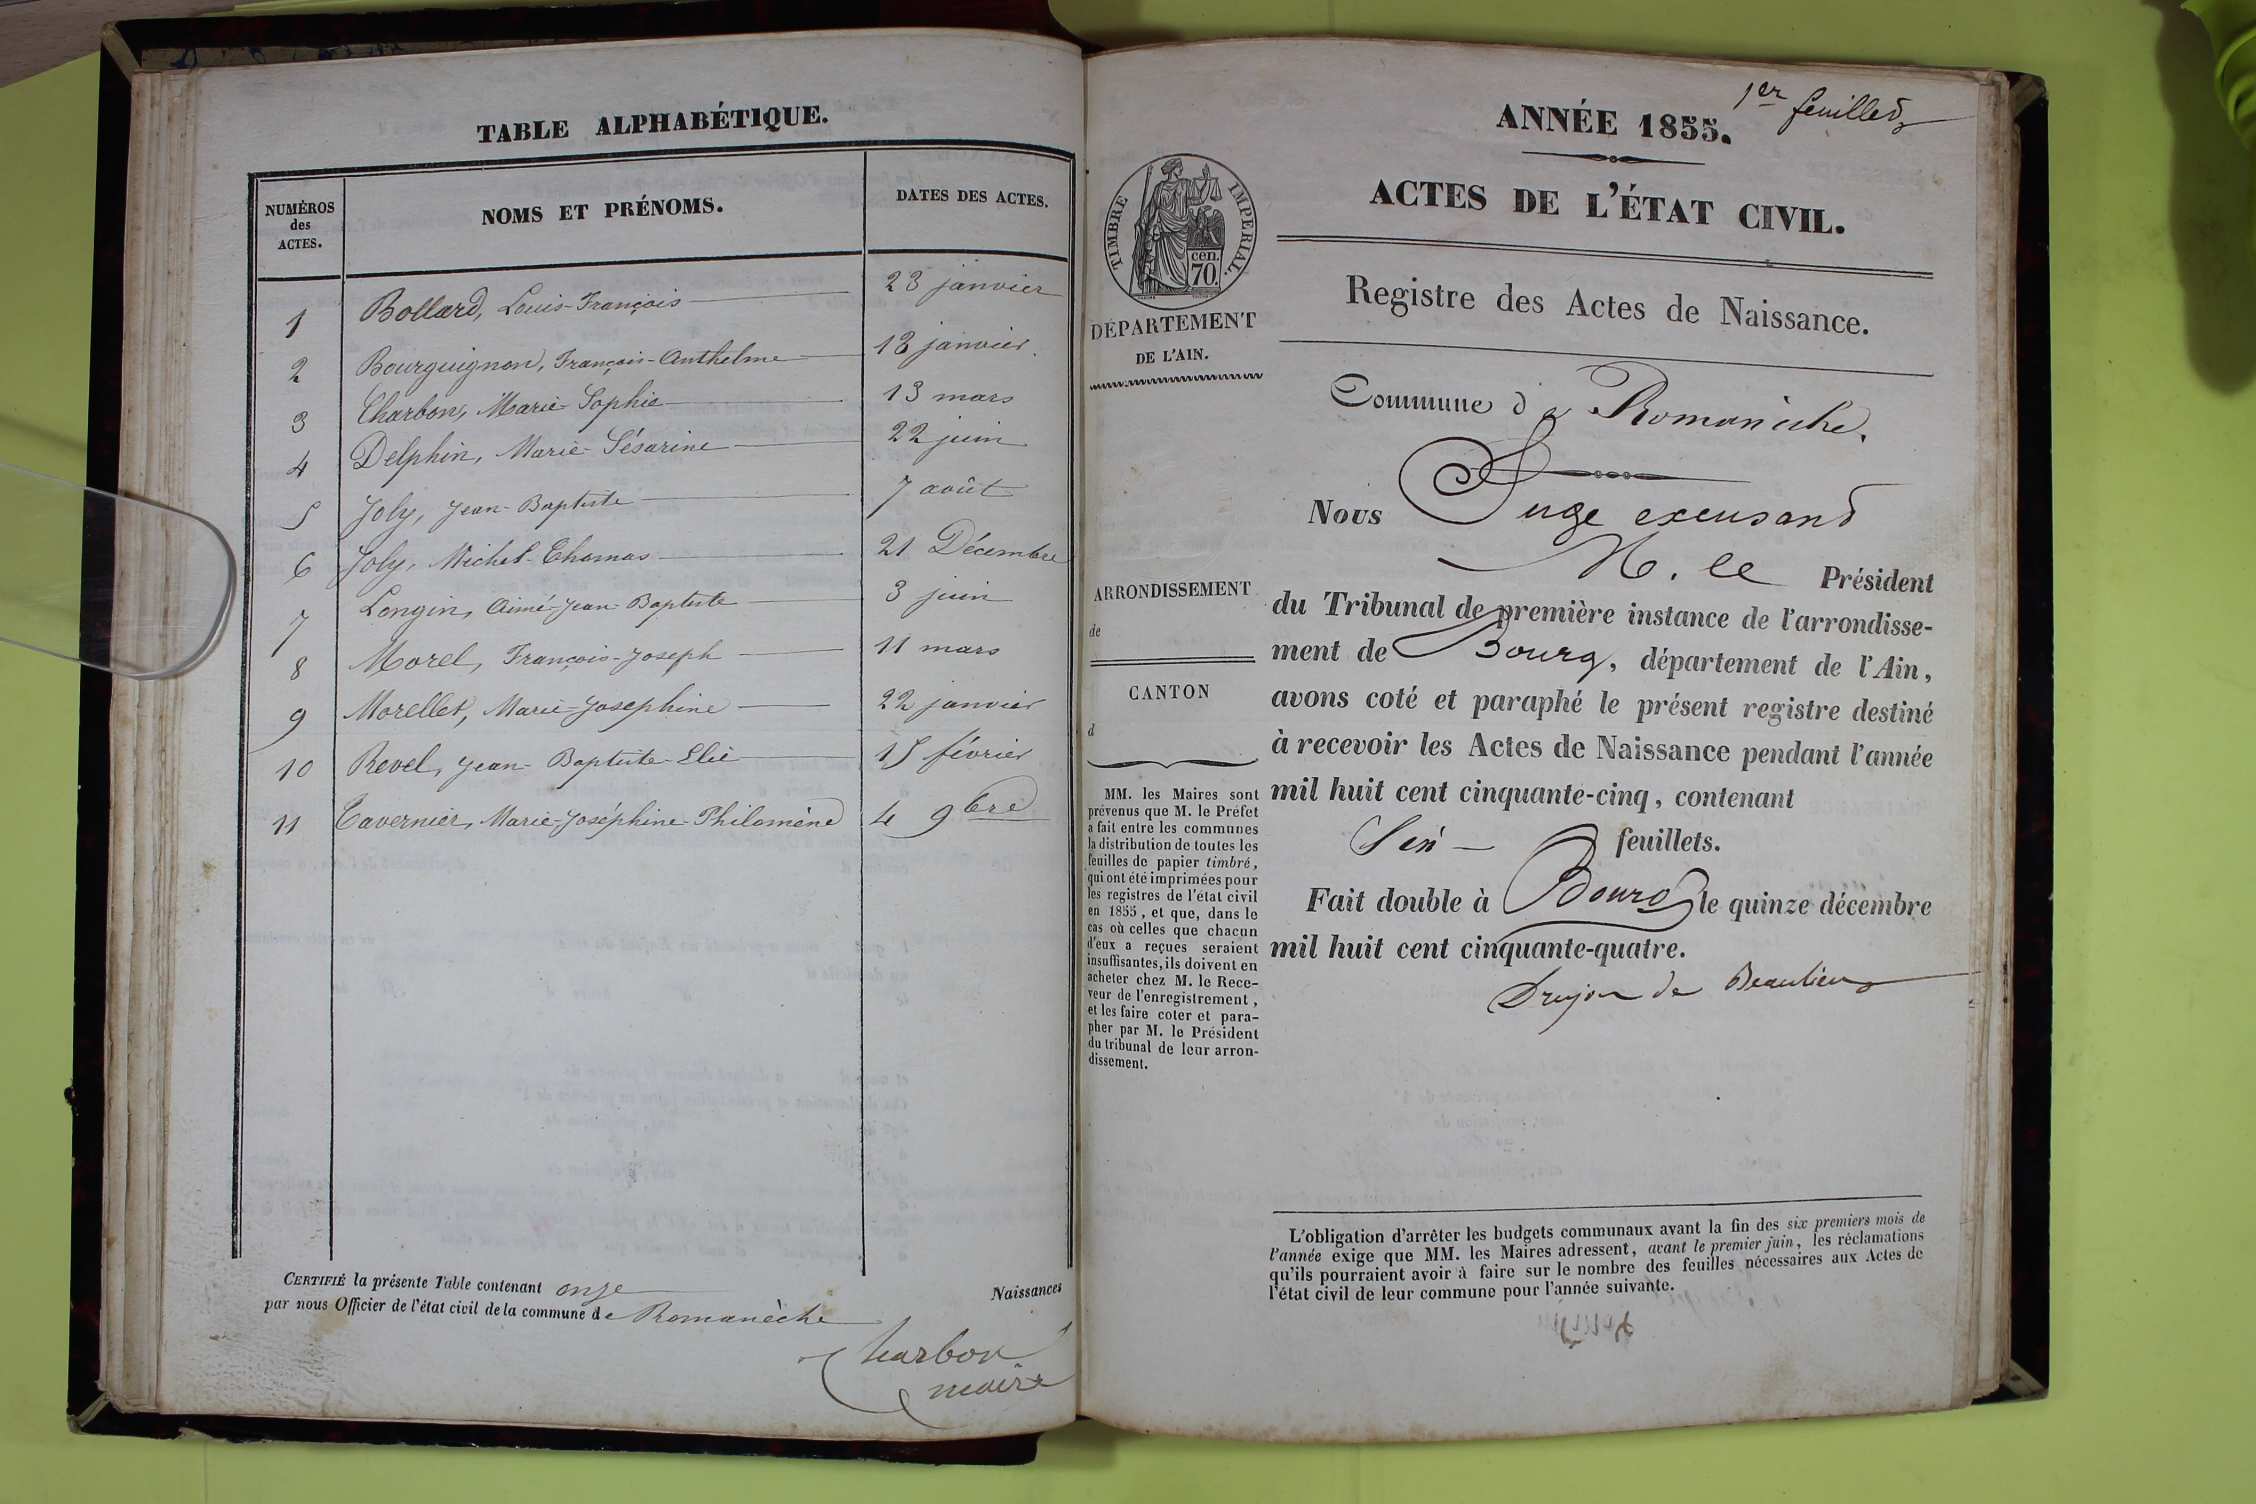 TABLE ALPHABÉTIQUE.
NUMÉROS
des
ACTES.
NOMS ET PRÉNOMS.
DATES DES ACTES.
1 Bollard, Louis-François 23 janvier
2 Bourguignon, François-Anthelme 18 janvier
3 Charbon, Marie Sophie 13 mars
4 Delphin, Marie-Césarine 22 juin
5 Joly, Jean-Baptiste 7 août
6 Joly, Michel-Thomas 21 Décembre
7 Longin, Aimé-Jean-Baptiste 3 juin
8 Morel, François-Joseph 11 mars
9 Morellet, Marie-Josephine 22 janvier
10 Revel, Jean-Baptiste-Elie 15 février
11 Tavernier, Marie-Joséphine-Philomène 4 9bre
CERTIFIÉ la présente Table contenant onze Naissances
par nous Officier de l'état civil de la commune de Romanèche
Charbon
maire
1er feuillet
ANNÉE 1855.
ACTES DE L'ÉTAT CIVIL.
TIMBRE IMPERIAL.
cen.
70.
DÉPARTEMENT
DE L'AIN.
ARRONDISSEMENT
de
CANTON
d
MM. les Maires sont
prévenus que M. le Préfet
a fait entre les communes
la distribution de toutes les
feuilles de papier timbré,
qui ont été imprimées pour
les registres de l'état civil
en 1855, et que, dans le
cas où celles que chacun
d'eux a reçues seraient
insuffisantes, ils doivent en
acheter chez M. le Rece-
veur de l'enregistrement,
et les faire coter et para-
pher par M. le Président
du tribunal de leur arron-
dissement.
Registre des Actes de Naissance.
Commune de Romanèche.
Nous Juge excusant
M. le Président
du Tribunal de première instance de l'arrondisse-
ment de Bourg, département de l'Ain,
avons coté et paraphé le présent registre destiné
à recevoir les Actes de Naissance pendant l'année
mil huit cent cinquante-cinq, contenant
Six feuillets.
Fait double à Bourg le quinze décembre
mil huit cent cinquante-quatre.
Drujon de Beaulieu
L'obligation d'arrêter les budgets communaux avant la fin des six premiers mois de
l'année exige que MM. les Maires adressent, avant le premier juin, les réclamations
qu'ils pourraient avoir à faire sur le nombre des feuilles nécessaires aux Actes de
l'état civil de leur commune pour l'année suivante.